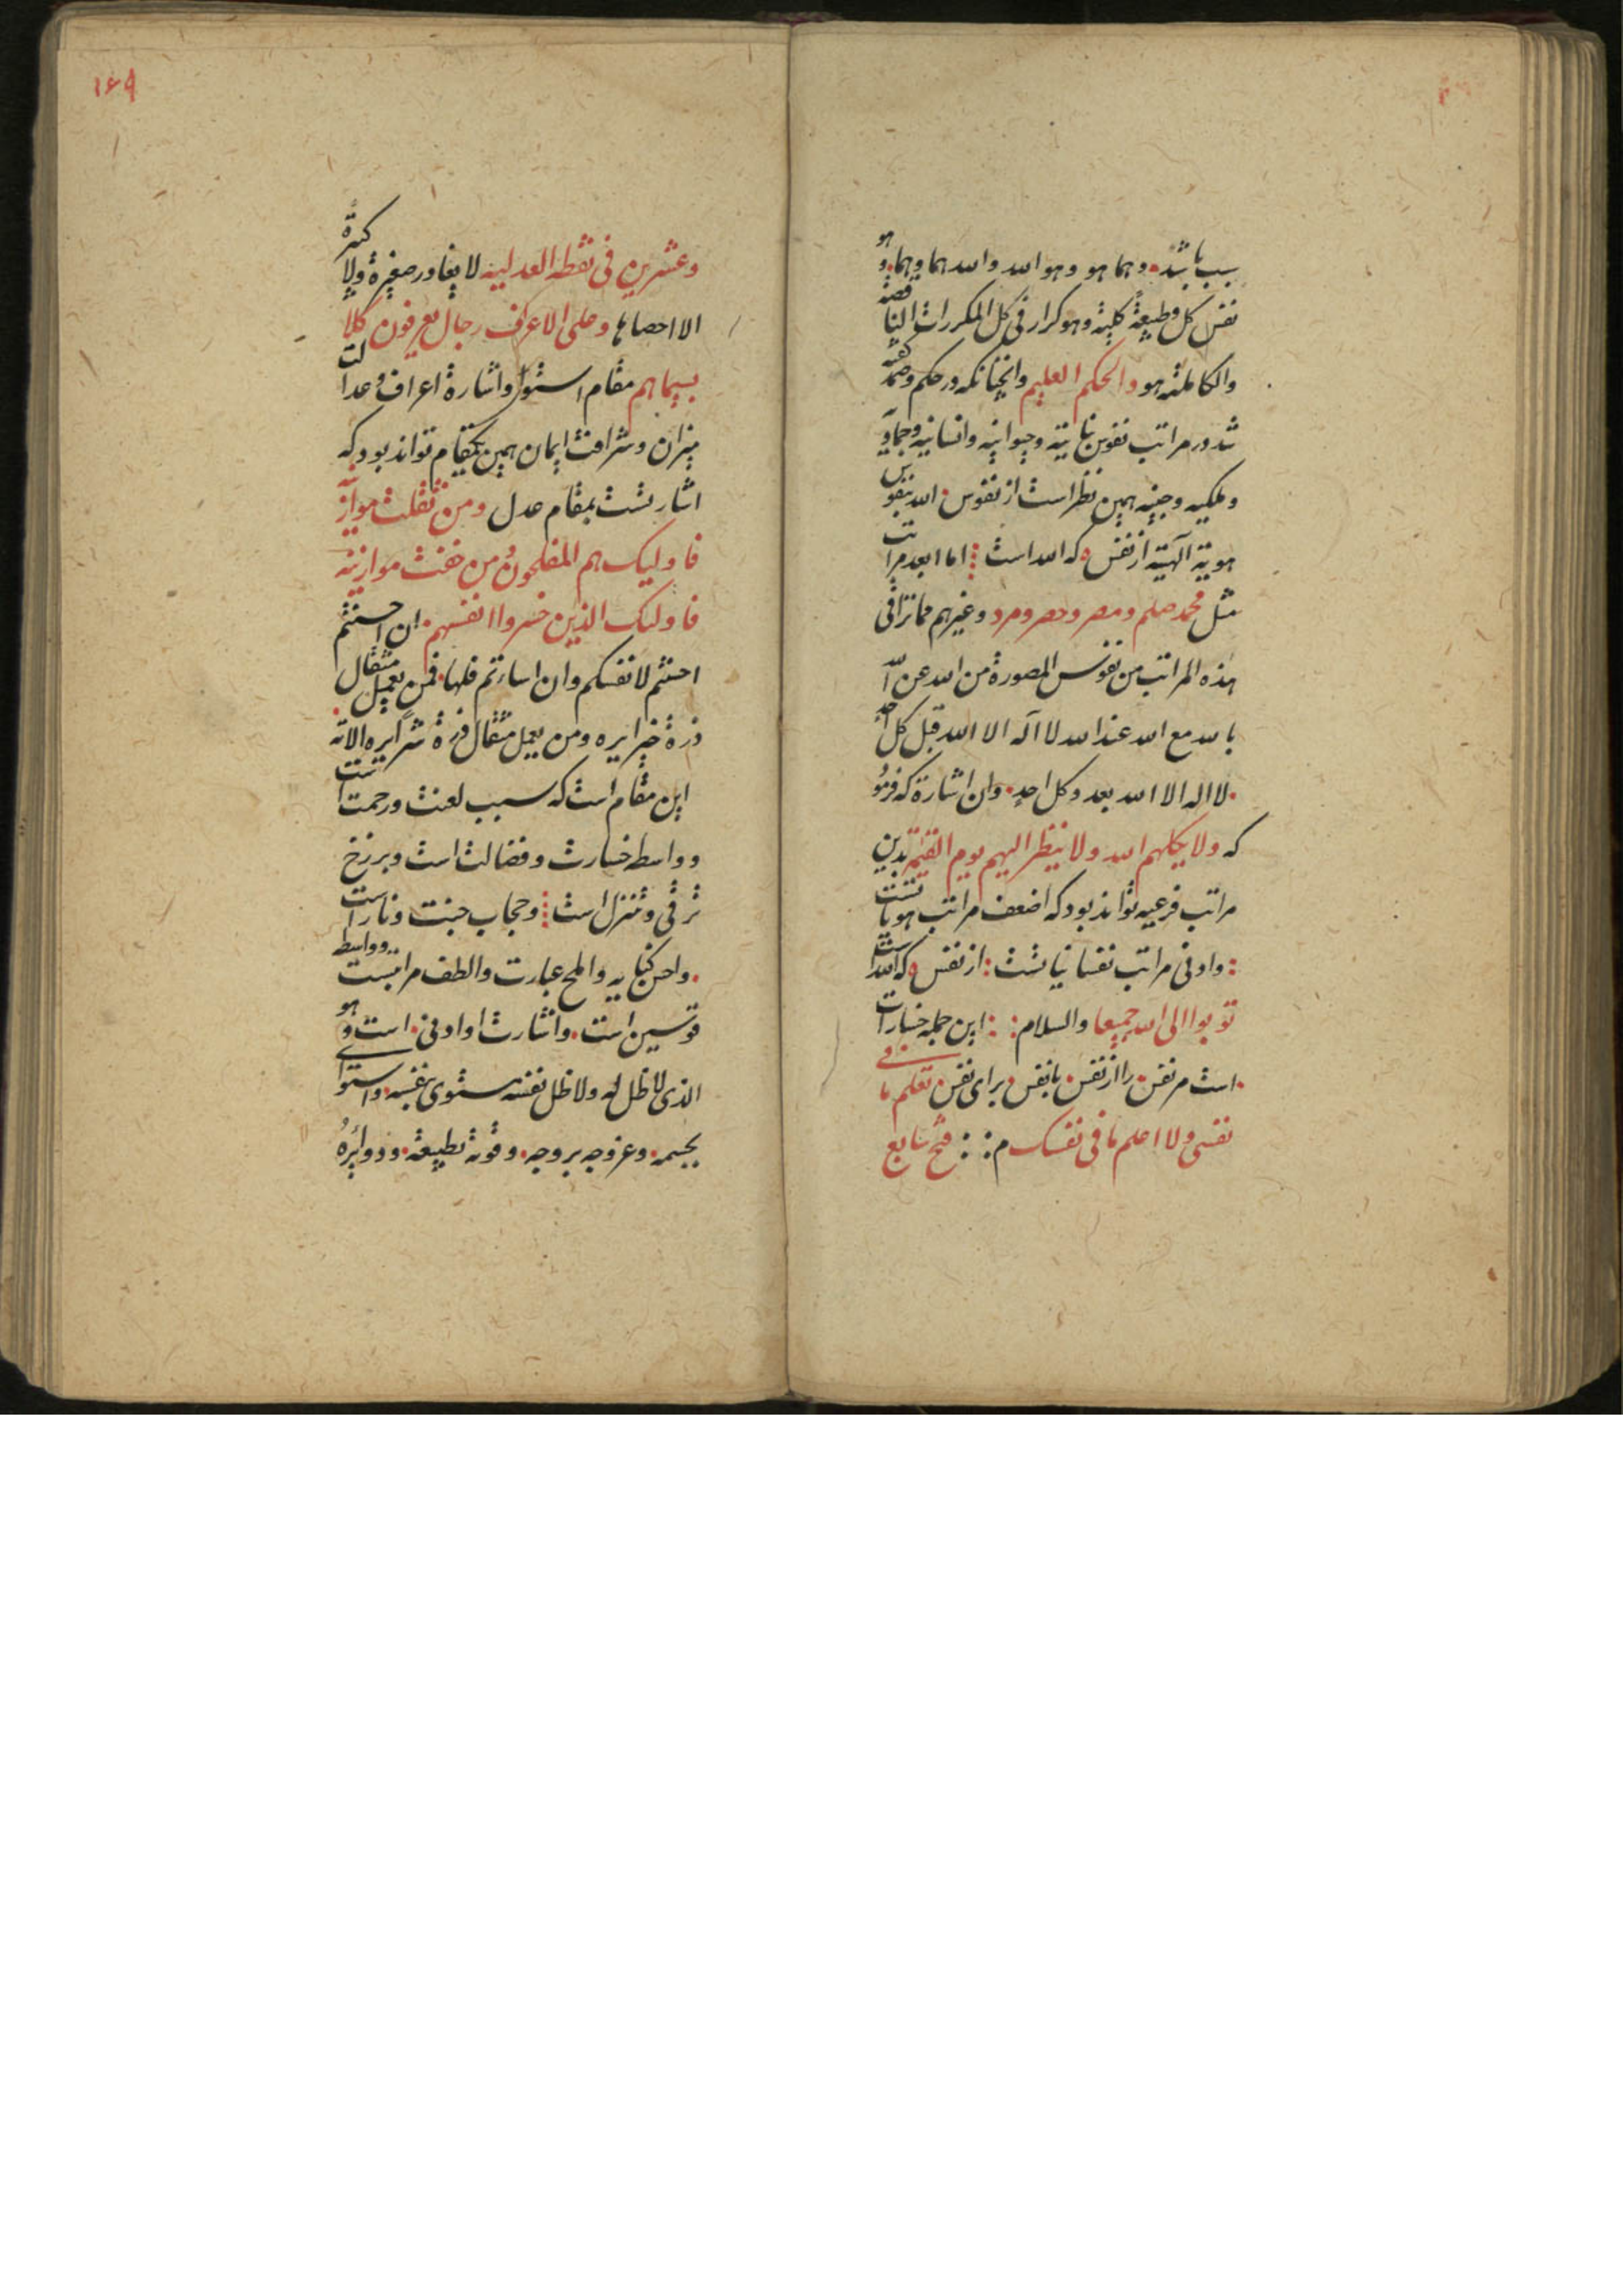 سبب باشد. و هما هو و هو الله و الله هما و هما. و هو
نفس کل و طبیعة کلیة و هو کرار فی کل المکررات الناقصة
والکاملة هو والحکم العلیم و انچنانکه در حکم و
شد در مراتب نفوس نباتیة و حیوانیه و انسانیه و جمادی
و ملکیه و جنیه همین نظر است از نفوس. الله بنفوس
هویة آلهیة از نفس ه که الله است اما ابعد مراتب
مثل محمد صلم و مصر و حصر و مرد و غیرهم مما تراقی
هذه المراتب من نفوس المصورة من الله عن الله
بالله مع الله عند الله لا اله الا الله قبل کل احد
. لا اله الا الله بعد و کل احد. و ان اشارة که فرمود
که ولا یکلمهم الله ولا ینظر الیهم یوم القیمة بدین
مراتب فرعیه تواند بود که اضعف مراتب هویاتست
: و ادنی مراتب نفسانیاتست : از نفس ه که الله است
توبوا الی الله جمیعا والسلام : : این جمله خسارات
. است مر نفس. را از نفس. با نفس. برای نفس تعلم ما فی
نفسی ولا اعلم ما فی نفسک م : : فتح سابع
۱۶۹
و عشرین فی نقطه العدلیه لا یغادر صغیرة ولا کبیرة
الا احصاها و علی الاعراف رجال یعرفون کلا
بسیماهم مقام استوا و اشارة اعراف و عدالت
میزان و شرافت ایمان همین یکمقام تواند بود که
اشارتست بمقام عدل و من ثقلت موازینه
فاولیک هم المفلحون و من خفت موازینه
فاولیک الذین خسروا انفسهم. ان احسنتم
احسنتم لانفسکم و ان اساءتم فلها. فمن یعمل مثقال
ذرة خیرا یره و من یعمل مثقال ذرة شرا یره الا نه
این مقام است که سبب لعنت و رحمت است
و واسطه خسارت و فضالت است و برزخ
ترقی و تنزل است و حجاب جنت و نار است
. و احسن کنایه و املح عبارت و الطف مراتبست و واسطه
قوسین است. و اشارت او ادنی. است و هو
الذی لا ظل له ولا ظل نفسه مستوی بنفسه. و استوای
بجسمه. و عروجه بروجه. و قوته بطبیعة. و دوایره